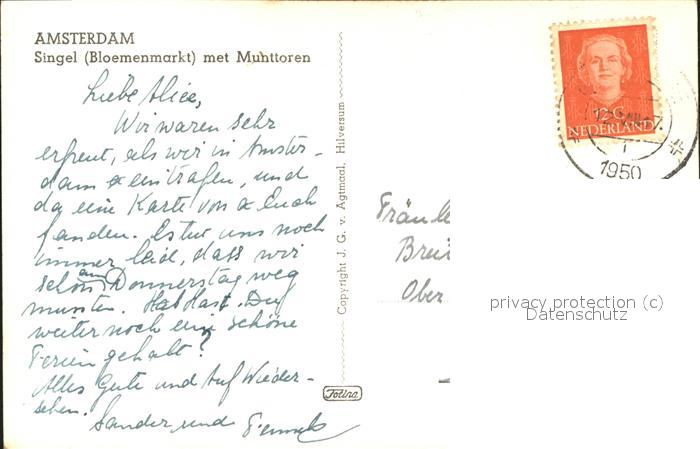 AMSTERDAM
Singel (Bloemenmarkt) met Munttoren
Liebe Alice,
Wir waren sehr
erfreut, als wir in Amster-
dam eintrafen, und
da eine Karte von Euch
fanden. Es tut uns noch
immer leid, dass wir
schon am Donnerstag weg
mussten. Hast Du
weiter noch eine schöne
Ferien gehabt?
Alles Gute und Auf Wieder-
sehen.
Sander und
Copyright J. G. v. Agtmaal, Hilversum
Fotina
12 C
NEDERLAND
1950
Fräule
Brei
Ober
privacy protection (c)
Datenschutz